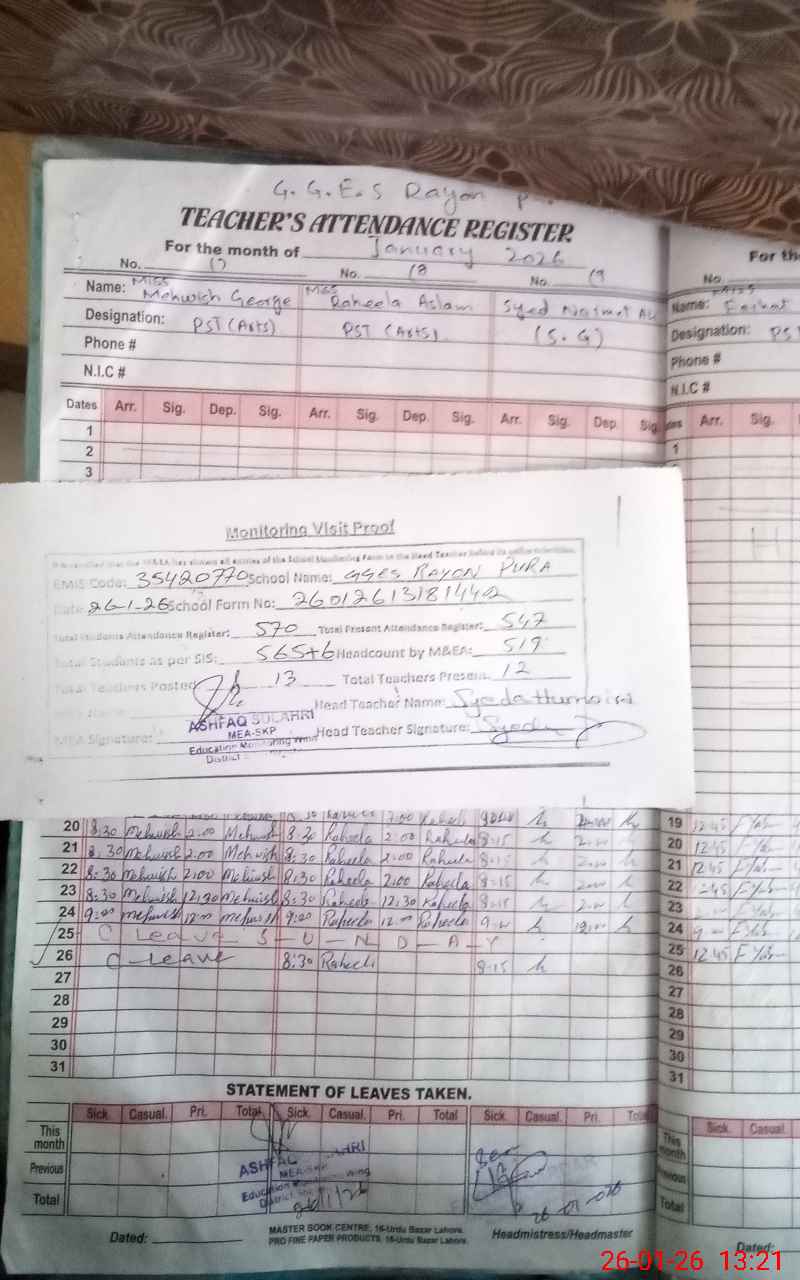 G.G.E.S Rayon P
TEACHER'S ATTENDANCE REGISTER
For the month of January 2026
No. 17 No. 18 No. 19
Name: Miss Mehwish George Miss Raheela Aslam Syed
Designation: PST (Arts) PST (Arts) (S.G)
Phone #
N.I.C #
Dates Arr. Sig. Dep. Sig. Arr. Sig. Dep. Sig. Arr. Sig. Dep. Sig.
1
2
3
Monitoring Visit Proof
EMIS Code: 35420770 School Name: GGES RAYON PURA
Date 26-1-26 School Form No: 26012613181442
Total Students Attendance Register: 570 Total Present Attendance Register: 547
Total Students as per SIS: 565+6 Headcount by M&EA: 519
Total Teachers Posted 13 Total Teachers Present 12
Head Teacher Name: Syeda Humaira
ASHFAQ SULAHRI
MEA-SKP
Education Monitoring Wing
District
MEA Signature: Head Teacher Signature: Syeda
20 8:30 Mehwish 2:00 Mehwish 8:30 Raheela 2:00 Raheela 8-15
21 8:30 Mehwish 2:00 Mehwish 8:30 Raheela 2:00 Raheela 8-15
22 8:30 Mehwish 2:00 Mehwish 8:30 Raheela 2:00 Raheela 8-15
23 8:30 Mehwish 12:30 Mehwish 8:30 Raheela 12:30 Raheela 8-15
24 9:00 Mehwish 12:00 Mehwish 9:00 Raheela 12:00 Raheela
25 C Leave S-U-N-D-A-Y
26 C-Leave 8:30 Raheela 8-15
27
28
29
30
31
STATEMENT OF LEAVES TAKEN.
Sick. Casual. Pri. Total Sick. Casual. Pri. Total Sick. Casual. Pri. Total
This month
Previous
Total
ASHFAQ SULAHRI
MEA-SKP
Education Wing
District
26/1/26
26-01-026
Dated:
MASTER BOOK CENTRE, 16-Urdu Bazar Lahore.
PRO FINE PAPER PRODUCTS, 16-Urdu Bazar Lahore.
Headmistress/Headmaster
For the
No.
Name: Miss
Designation: PS
Phone #
N.I.C #
Arr. Sig.
1
H
19 12:45
20 12:45
21 12:45
22 12:45
23
24
25 12:45
26
27
28
29
30
31
Sick. Casual.
This month
Previous
Total
Dated:
26-01-26 13:21